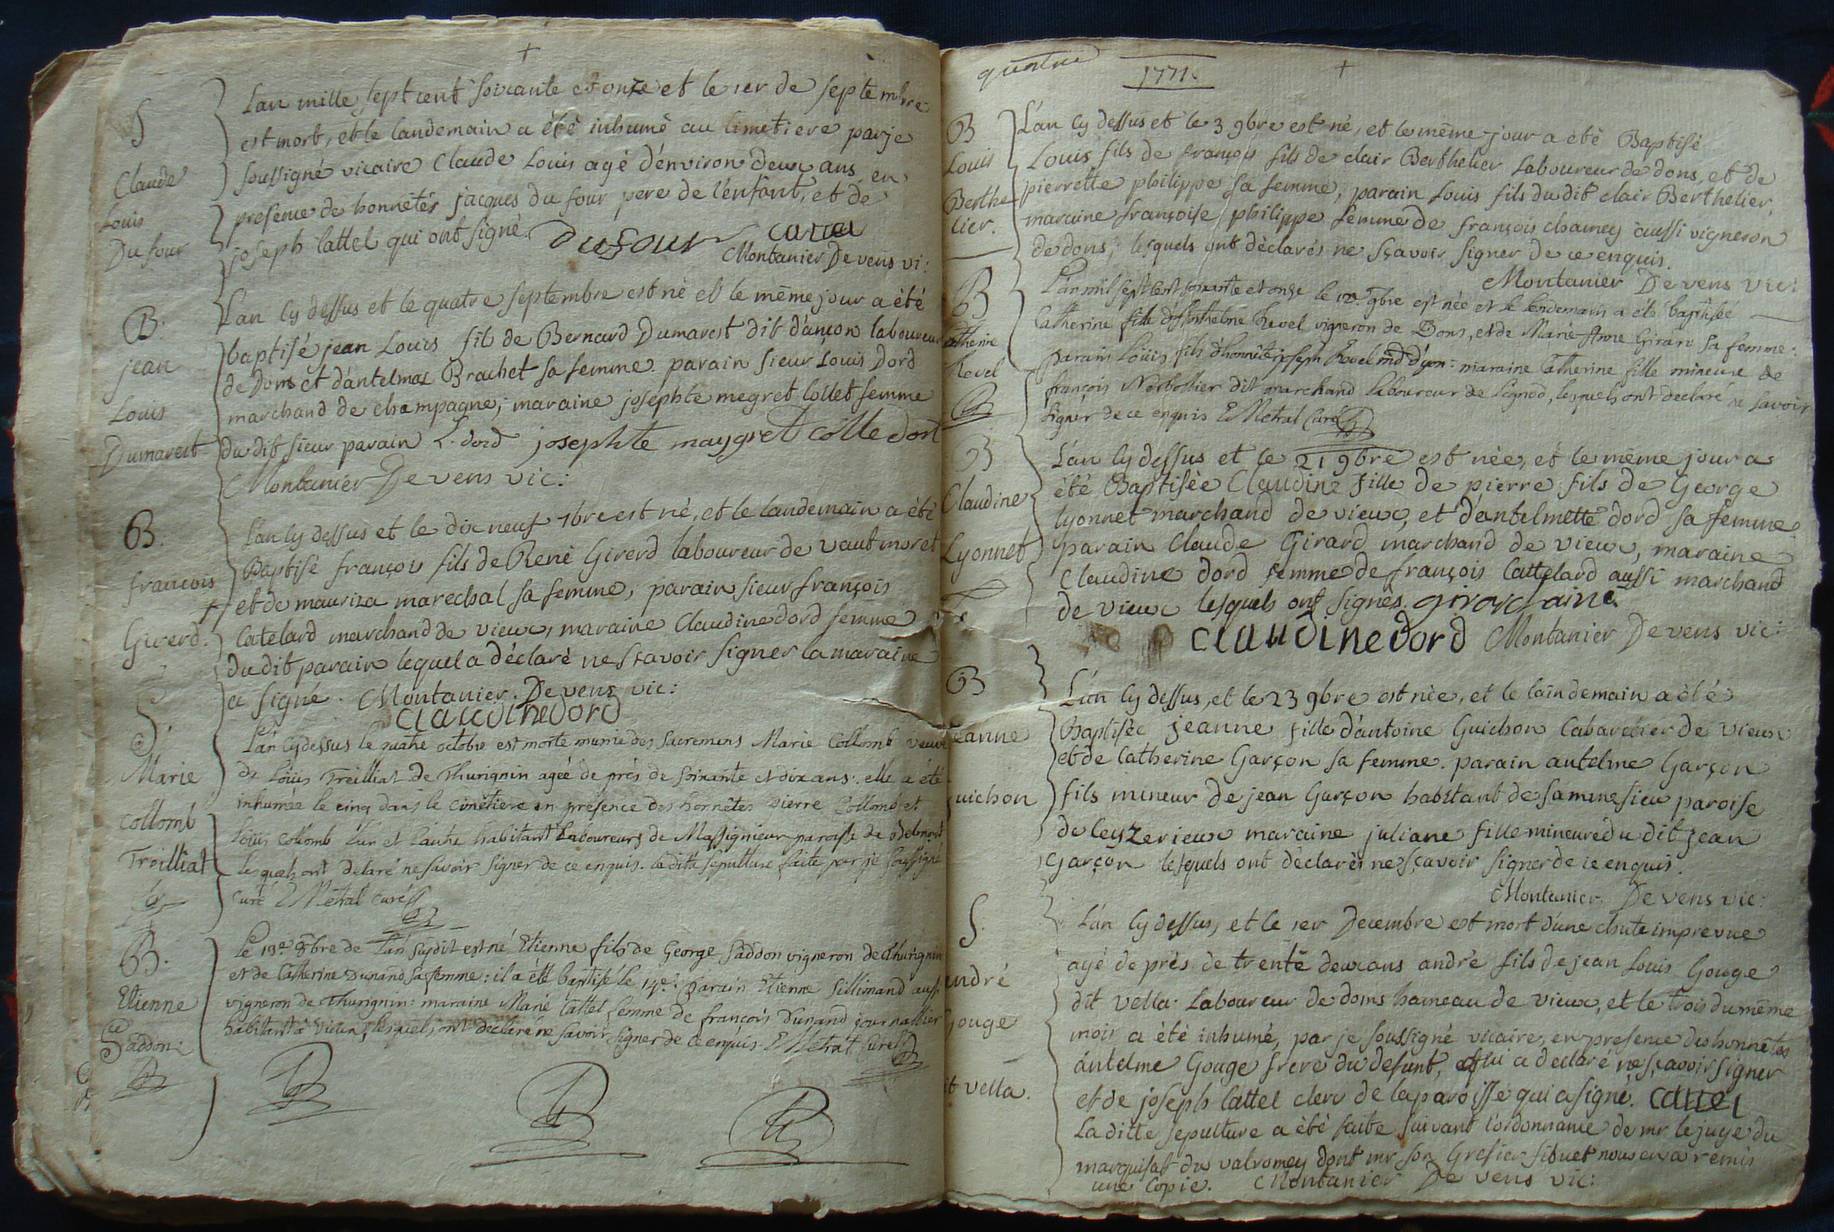 S
Claude
Louis
Du four
L'an mille sept cent soixante et onze et le 1er de septembre
est mort, et le landemain a été inhumé au cimetiere par je
soussigné vicaire Claude Louis agé d'environ deux ans en
presence de honnêtes jacques du four pere de l'enfant, et de
joseph lattel qui ont signé. Dufour
Montanier De vens vi:
B.
jean
Louis
Dumarest
L'an cy dessus et le quatre septembre est né et le même jour a été
baptisé jean Louis fils de Bernard Dumarest dit d'ançon laboureur
de Dons et d'antelmaz Brachet sa femme parain sieur Louis Dord
marchand de champagne; maraine josephte megret collet femme
du dit sieur parain L. dord josephte maygret colle dord
Montanier De vens vic:
B.
francois
Girerd.
L'an cy dessus et le dix neuf 7bre est né, et le landemain a été
Baptisé françois fils de Renè Girerd laboureur de vautmoret
et de mauriza marechal sa femme, parain sieur françois
Catelard marchand de vieux, maraine Claudine dord femme
du dit parain lequel a déclaré ne scavoir signer la maraine
a signé. Montanier. De vens vic:
claudine dord
S.
Marie
collomb
Treilliat
L'an cy dessus le quatre octobre est morte munie des sacremens Marie Collomb veuve
de Loüis Treilliat de Thurignin agée de près de soixante et dix ans. elle a été
inhumée le cinq dans le cimetiere en présence des honnêtes pierre Collomb et
loüis collomb l'un et l'autre habitant laboureurs de Massignieux paroisse de
lesquels ont déclaré ne savoir signer de ce enquis. la ditte sepulture faite par je soussigné
curé E Metral curé
B.
Etienne
Saddon:
Le 13e 8bre de l'an susdit est né Etienne fils de George Saddon vigneron de Thurignin
et de Catherine Dunand sa femme: il a été baptisé le 14e. parain Etienne Sillimand aussi
vigneron de Thurignin: maraine Marie Lattel femme de françois Dunand journallier
habitant à Vieux, lesquels ont déclaré ne savoir signer de ce enquis. E Metral Curé
quatre
1771.
B
Louis
Berthe
lier.
L'an cy dessus et le 3 9bre est né, et le même jour a été Baptisé
Louis fils de françois fils de clair Berthelier Laboureur de dons, et de
pierrette philippe sa femme, parain Louis fils du dit clair Berthelier,
maraine françoise philippe femme de françois chamey aussi vigneron
de dons; lesquels ont déclarés ne sçavoir signer de ce enquis.
Montanier De vens vic:
B
Catherine
Revel
L'an mil sept cent soixante et onze le 9bre est née et le lendemain a été baptisée
Catherine fille d'Anthelme Revel vigneron de Dons, et de Marie-Anne Girard sa femme:
parain Loüis fils d'honnête joseph Revel md d'yon: maraine Catherine fille mineure de
françois Norbollier dit marchand laboureur de Lignod, lesquels ont déclaré ne savoir
signer de ce enquis E Metral Curé
B
Claudine
Lyonnet
L'an cy dessus et le 21 9bre est née, et le même jour a
été Baptisée Claudine fille de pierre fils de George
lyonnet marchand de vieux, et d'antelmette dord sa femme
parain Claude Girard marchand de vieux, maraine
Claudine dord femme de françois Cattelard aussi marchand
de vieux lesquels ont signés.
claudine dord Montanier De vens vic:
B
jeanne
guichon
L'an cy dessus, et le 23 9bre est née, et le laindemain a été
Baptisée jeanne fille d'antoine Guichon Cabaretier de vieux
et de Catherine Garçon sa femme. parain antelme Garçon
fils mineur de jean Garçon habitant de sammesieu paroise
de leyzerieux maraine juliane fille mineure du dit jean
Garçon lesquels ont déclarés ne sçavoir signer de ce enquis.
Montanier De vens vic:
S.
andré
gouge
dit vella.
L'an cy dessus, et le 1er Decembre est mort d'une chute imprevue
agé de près de trente deux ans andré fils de jean Louis Gouge
dit vella Laboureur de doms hameau de vieux, et le trois du même
mois a été inhumé, par je soussigné vicaire, en presence des honnêtes
antelme Gouge frere du defunt, qui a declaré ne sçavoir signer
et de joseph lattel clerc de la paroisse qui a signé. Lattel
La ditte sepulture a été faite suivant l'ordonnance de mr le juge du
marquisat du valromey dont mr son Grefier sibuet nous en a remis
une copie. Montanier De vens vic: